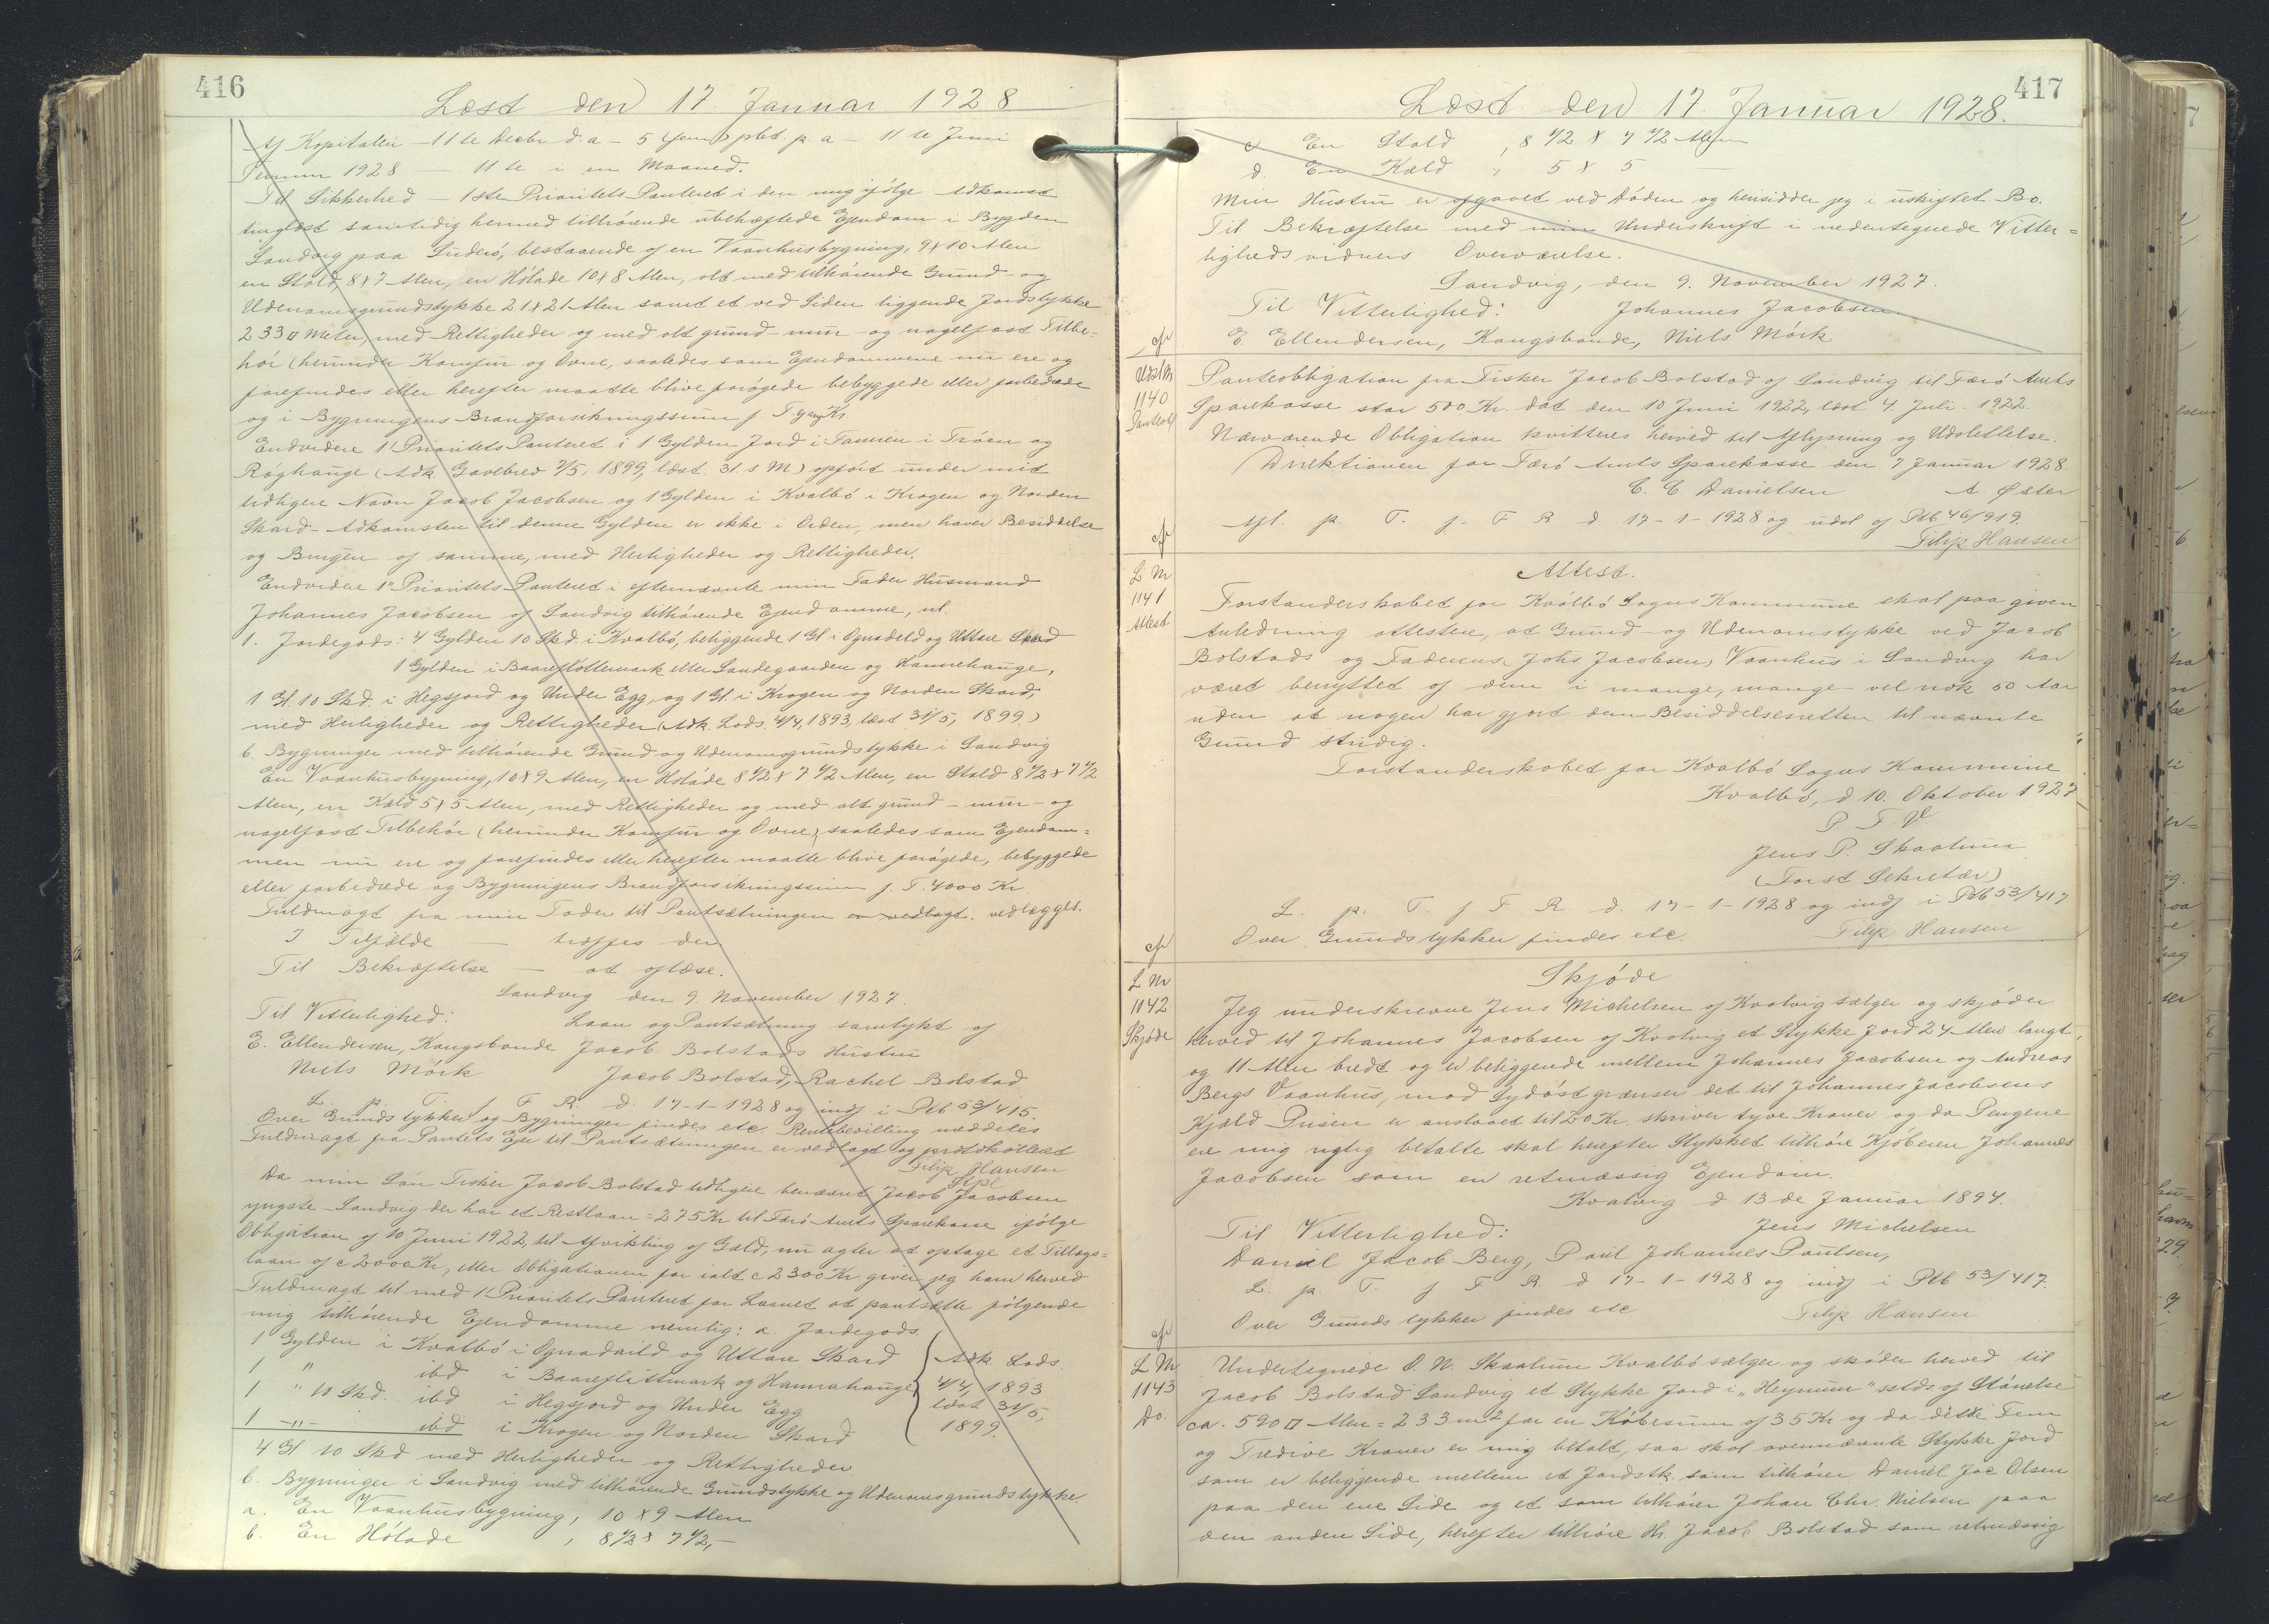 416
Læst den 17. Januar 1928
Af Kapitalen - 11te Decbr d.a - 5 (fem) pCt. p a - 11te Juni
Termin 1928 - 11te i en Maaned.
Til Sikkerhed - 1ste Prioritets Panteret i den mig ifølge Adkomst
tinglæst samtidig hermed tilhørende ubehæftede Ejendom i Bygden
Sandvig paa Suderø, bestaaende af en Vaanhusbygning, 9x10 Alen
en Stald 8x7 Alen, en Hølade 10x8 Alen, alt med tilhørende Grund- og
Udenomsgrundstykke 21x21 Alen samt et ved Siden liggende Jordstykke
233 □ Meter, med Rettigheder og med alt grund- mur- og nagelfast Tilbe-
hør (herunder Komfur og Ovne, saaledes som Ejendommene nu ere og
forefindes eller herefter maatte blive forøgede bebyggede eller forbedrede
og i Bygningens Brandforsikringssum f. T. Kr
Endvidere 1' Prioritets Panteret i 1 Gylden Jord i Famien i Trøen og
Røghauge (Adk. Gavebrev 2/5, 1899, læst. 31. s M) opført under mit
tidligere Navn Jacob Jacobsen og 1 Gylden i Kvalbø i Krogen og Norden
Skard - Adkomsten til denne Gylden er ikke i Orden, men haver Besiddelse
og Brugen af samme, med Herligheder og Rettigheder.
Endvidere 1" Prioritets Panteret i efternævnte min Fader Husmand
Johannes Jacobsen af Sandvig tilhørende Ejendomme, nl.
1. Jordegods: 4 Gylden 10 Skd i Kvalbø, beliggende 1 Gl i Ognadeld og Uttare Skard
1 Gylden i Baareflottemark eller Sandegaarden og Hannehauge,
1 Gl. 10 Skd. i Hegsjord og Under Egg, og 1 Gl. i Krogen og Norden Skard,
med Herligheder og Rettigheder (Adk. Lods. 4/4, 1893, læst 31/5, 1899.)
b. Bygninger med tilhørende Grund og Udenomsgrundstykke i Sandvig
En Vaanhusbygning, 10x9 Alen, en Hølade 8 1/2 x 7 1/2 Alen, en Stald 8 1/2 x 7 1/2
Alen, en Kæld 5x5 Alen, med Rettigheder og med alt grund- mur- og
nagelfast Tilbehør (herunder Komfur og Ovne) saaledes som Ejendom=
men nu ere og forefindes eller herefter maatte blive forøgede, bebyggede
eller forbedrede og Bygningens Brandforsikringssum f. T. 4000 Kr.
Fuldmagt fra min Fader til Pantsætningen er vedlagt. vedlægges.
I Tilfælde - træffes den
Til Bekræftelse - at aflæse.
Sandvig den 9. November 1927.
Til Vitterlighed: Laan og Pantsætning samtykt af
E. Ellendersen, Kongsbonde Jacob Bolstads Hustru
Niels Mørk Jacob Bolstad, Rachel Bolstad
L. p. T. f F R. d. 17-1-1928 og indf i Ptb 53/415.
Over Grundstykker og Bygninger findes etc. Rentebevilling meddeles
Fuldmagt fra Pantets Ejer til Pantsætningen er vedlagt og protokolleret
Filip Hansen
Da min Søn Fisker Jacob Bolstad tidligere benævnt Jacob Jacobsen
yngste Sandvig der har et Restlaan = 275 Kr til Færø Amts Sparekasse ifølge
Obligation af 10 Juni 1922, til Afvikling af Gæld, nu agter at optage et Tillægs=
laan af c 2000 Kr, eller Obligationen for ialt c 2300 Kr. giver jeg ham herved
Fuldmagt til med 1' Prioritets Panteret for Laanet at pantsætte følgende
mig tilhørende Ejendomme nemlig: a. Jordegods.
1 Gylden i Kvalbø i Ognadaild og Uttare Skard Adk. Lods.
1 " ibd i Baareflittmark og Hannahauge 4/4, 1893
1 " 10 Skd. ibd i Hegsjord og Under Egg læst 31/5,
1 -"- ibd i Krogen og Norden Skard 1899.
4 Gl. 10 Skd med Herligheder og Rettigheder
b. Bygninger i Sandvig med tilhørende Grundstykke og Udenomsgrundstykke
a. En Vaanhusbygning, 10 x 9 Alen
b. En Hølade , 8 1/2 x 7 1/2, -
417
Læst den 17. Januar 1928.
c En Stald , 8 1/2 x 7 1/2 Alen
d. En Kæld , 5 x 5 -
Min Hustru er afgaaet ved Døden og hensidder jeg i uskiftet Bo.
Til Bekræftelse med min Underskrift i nedentegnede Vitter=
lighedsvidners Overværelse.
Sandvig, den 9. November 1927.
Til Vitterlighed: Johannes Jacobsen
E Ellendersen, Kongsbonde, Niels Mørk
cfr
Udsl
1140
Panteobl
Panteobligation fra Fisker Jacob Bolstad af Sandvig til Færø Amts
Sparekasse stor 500 Kr. dat den 10 Juni 1922, læst 4. Juli. 1922.
Nærværende Obligation kvitteres herved til Aflysning og Udslettelse.
Direktionen for Færø Amts Sparekasse den 7 Januar 1928.
C. C Danielsen A. Øster
Afl. p. T. f. F R d 17-1-1928 og udsl af Ptb 46/919.
cfr
Filip Hansen
L Nr
1141
Attest
Attest.
Forstanderskabet for Kvalbø Sogns Kommune skal paa given
Anledning attestere, at Grund- og Udenomstykke ved Jacob
Bolstads og Faderens, Johs Jacobsens, Vaanhus i Sandvig har
været benyttet af dem i mange, mange - vel nok 50 Aar
uden at nogen har gjort dem Besiddelsesretten til nævnte
Grund stridig.
Forstanderskabet for Kvalbø Sogns Kommune
Kvalbø, d 10. Oktober 1927
P. F. V
Jens P. Skaalum
(Forst Sekretær)
L. p. T. f F R. d. 17-1-1928 og indf i Ptb 53/417
cfr
Over Grundstykker findes etc. Filip Hansen
L Nr
1142
Skjøde
Skjøde
Jeg underskrevne Jens Michelsen af Kvalvig sælger og skjøder
herved til Johannes Jacobsen af Kvalvig et Stykke Jord 24 Alen langt,
og 11 Alen bredt og er beliggende mellem Johannes Jacobsen og Andreas
Bergs Vaanhus, mod Sydøst grænser det til Johannes Jacobsens
Kjæld Prisen er anslaaet til 20 Kr. skriver tyve Kroner og da Pengene
ere mig rigtig betalte skal herefter Stykket tilhøre Kjøberen Johannes
Jacobsen som en retmæssig Ejendom.
Kvalvig d 13de Januar 1894.
Til Vitterlighed: Jens Michelsen
Daniel Jacob Berg, Paul Johannes Poulsen,
L. p. T. f F R d 17-1-1928 og indf i Ptb 53/417.
cfr
Over Grundstykker findes etc Filip Hansen
L Nr
1143
Do.
Undertegnede O. N. Skaalum Kvalbø sælger og skøder herved til
Jacob Bolstad Sandvig et Stykke Jord i "Heynum" sstds af Størrelse
ca. 590 □ Alen = 233 m2 for en Købesum af 35 Kr og da disse Fem
og Tredive Kroner er mig betalt, saa skal ovennævnte Stykke Jord
som er beliggende mellem et Jordstk. som tilhører Daniel Jac Olsen
paa den ene Side og et som tilhører Johan Chr. Nielsen paa
den anden Side, herefter tilhøre Hr. Jacob Bolstad som retmæssig